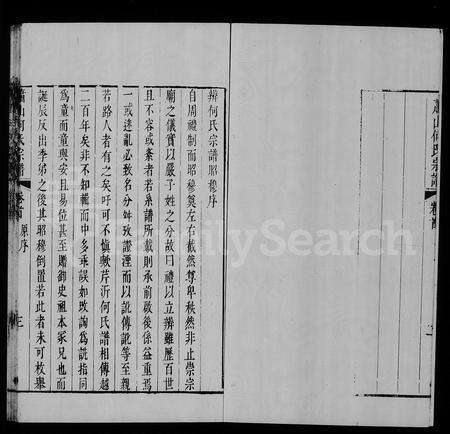 蕭山何氏宗譜
卷首
辨何氏宗譜昭穆序
自周禮制而昭穆奠左右截然尊卑秩然非止崇宗
廟之儀實以嚴子姓之分故曰禮以立辨雖歷百世
且不容或紊者若系譜所載則承前啟後係益重焉
一或迷亂必致名分舛攷證湮而以訛傳訛等至親
若路人者有之矣吁可不慎歟芹沂何氏譜相傳越
二百年矣非不知輯而中多乖誤如攺詢為誢指同
為童而童與安且易位甚至贈御史祖本家兄也而
誕辰反出季弟之後其昭穆倒置若此者未可枚舉
蕭山何氏宗譜
卷首
原序
三
FamilySearch